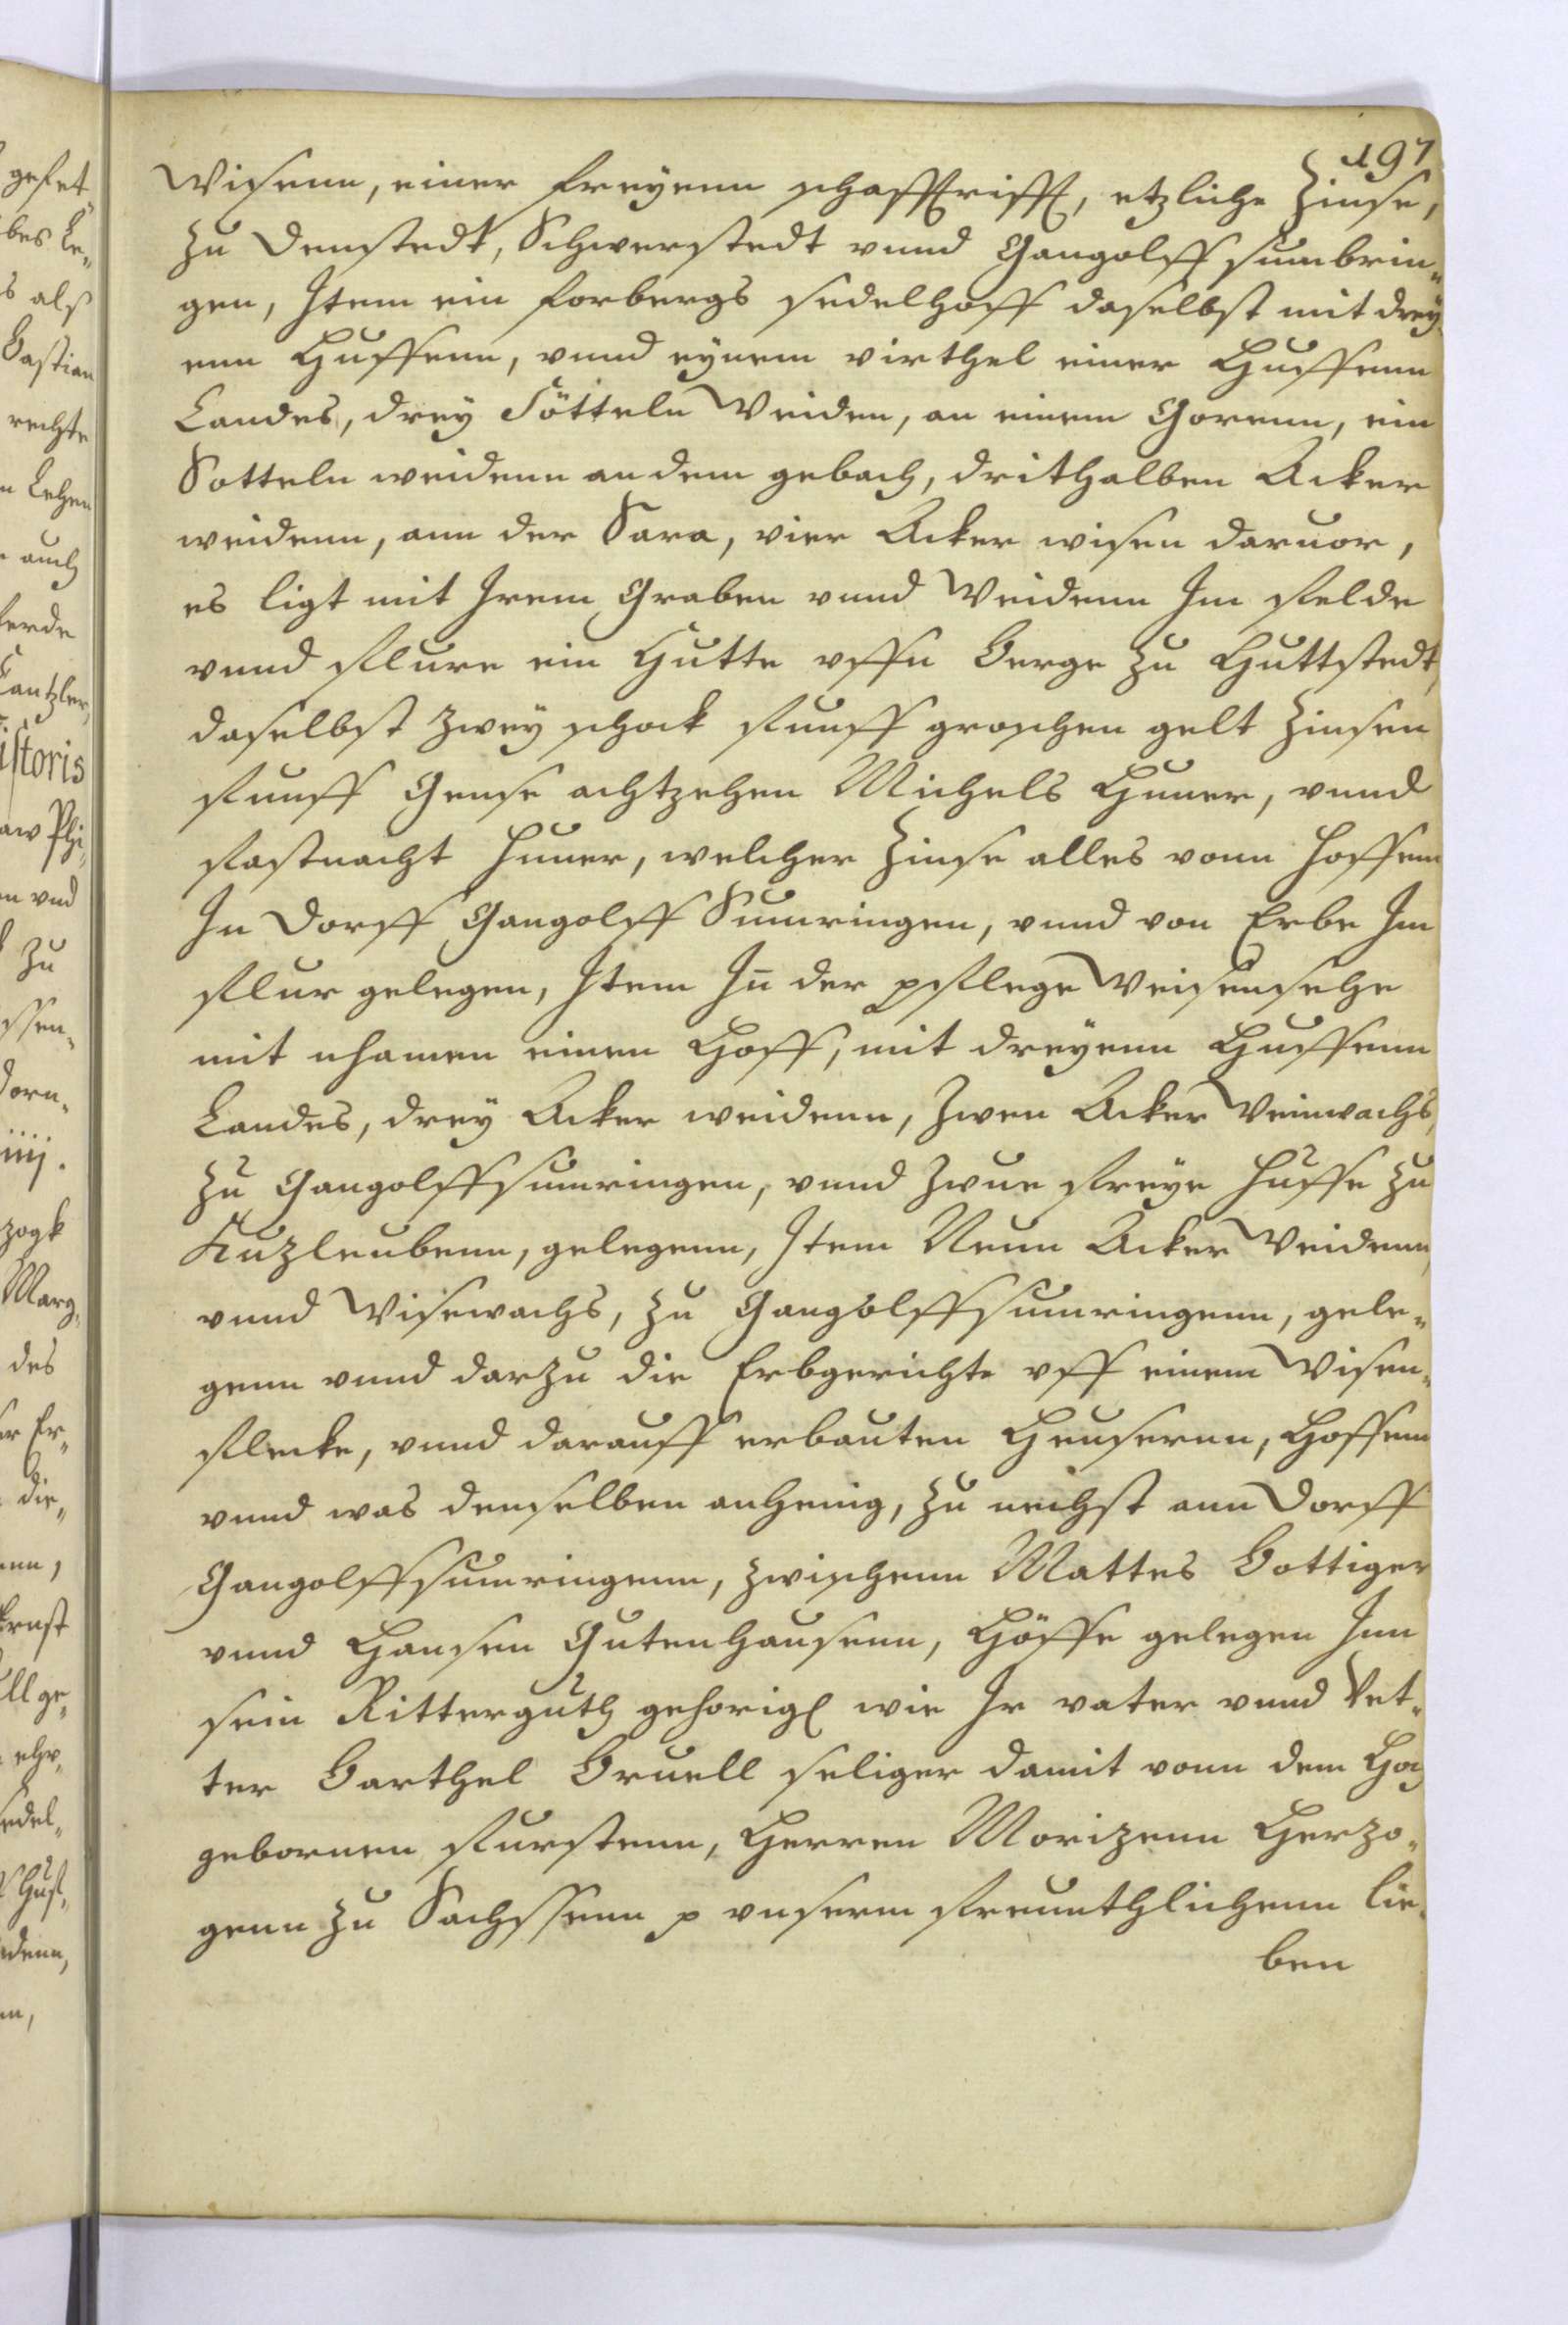 197
Wisenn, einer freyenn schafftrifft, etzliche Zinse,
zu Denstedt, Schwerstedt vnnd Gangolffsumbrin„
gen, Item ein forbergs sedelhoff daselbst mit drey
enn Huffenn, vnnd eynem virthel einer Huffenn
Landes, drey Sötteln Weiden, an einem Gorenn, ein
Sotteln weidenn an dem gebach, drithalben Acker
weidenn, ann der Sara, vier Acker wisen daruor,
es ligt mit Irem Graben vnnd Weidenn Im felde
vnnd flure ein Hutte vffn Berge zu Huttstedt,
daselbst zwey schock funff groschen gelt Zinsen
funff Gense achtzehen Michels Huner, vnnd
fastnacht Huner, welcher Zinse alles vonn Hoffenn
In Dorff Gangolff Sumringen, vnnd von Erbe Im
flur gelegen, Item In̄ der pflege Weisensehe
mit nhamen einen Hoff, mit dreyenn Huffenn
Landes, drey Acker weidenn, Zwen Acker Weinwachs,
zu Gangolffsumringen, vnnd zwue freye Huffe zu
Kuzleubenn, gelegenn, Item Neun Acker Weidenn,
vnnd Wisewachs, zu Gangolffsumringenn, gele„
genn vnnd darzu die Erbgerichte vff einem Wisen„
flecke, vnnd darauff erbauten Heusernn, Hoffenn
vnnd was demselben anhenig, zu nechst ann Dorff
Gangolffsumringenn, zwischenn Mattes Bottiger
vnnd Hansen Gutenhausenn, Höffe gelegen Inn
sein Ritterguth gehorig wie Ir vater vnnd Vet„
ter Barthel Bruell seliger damit vonn dem Hoch
gebornen furstenn, Herren Morizenn Herzo„
genn zu Sachssenn p vnserm freunthlichenn lie„
ben